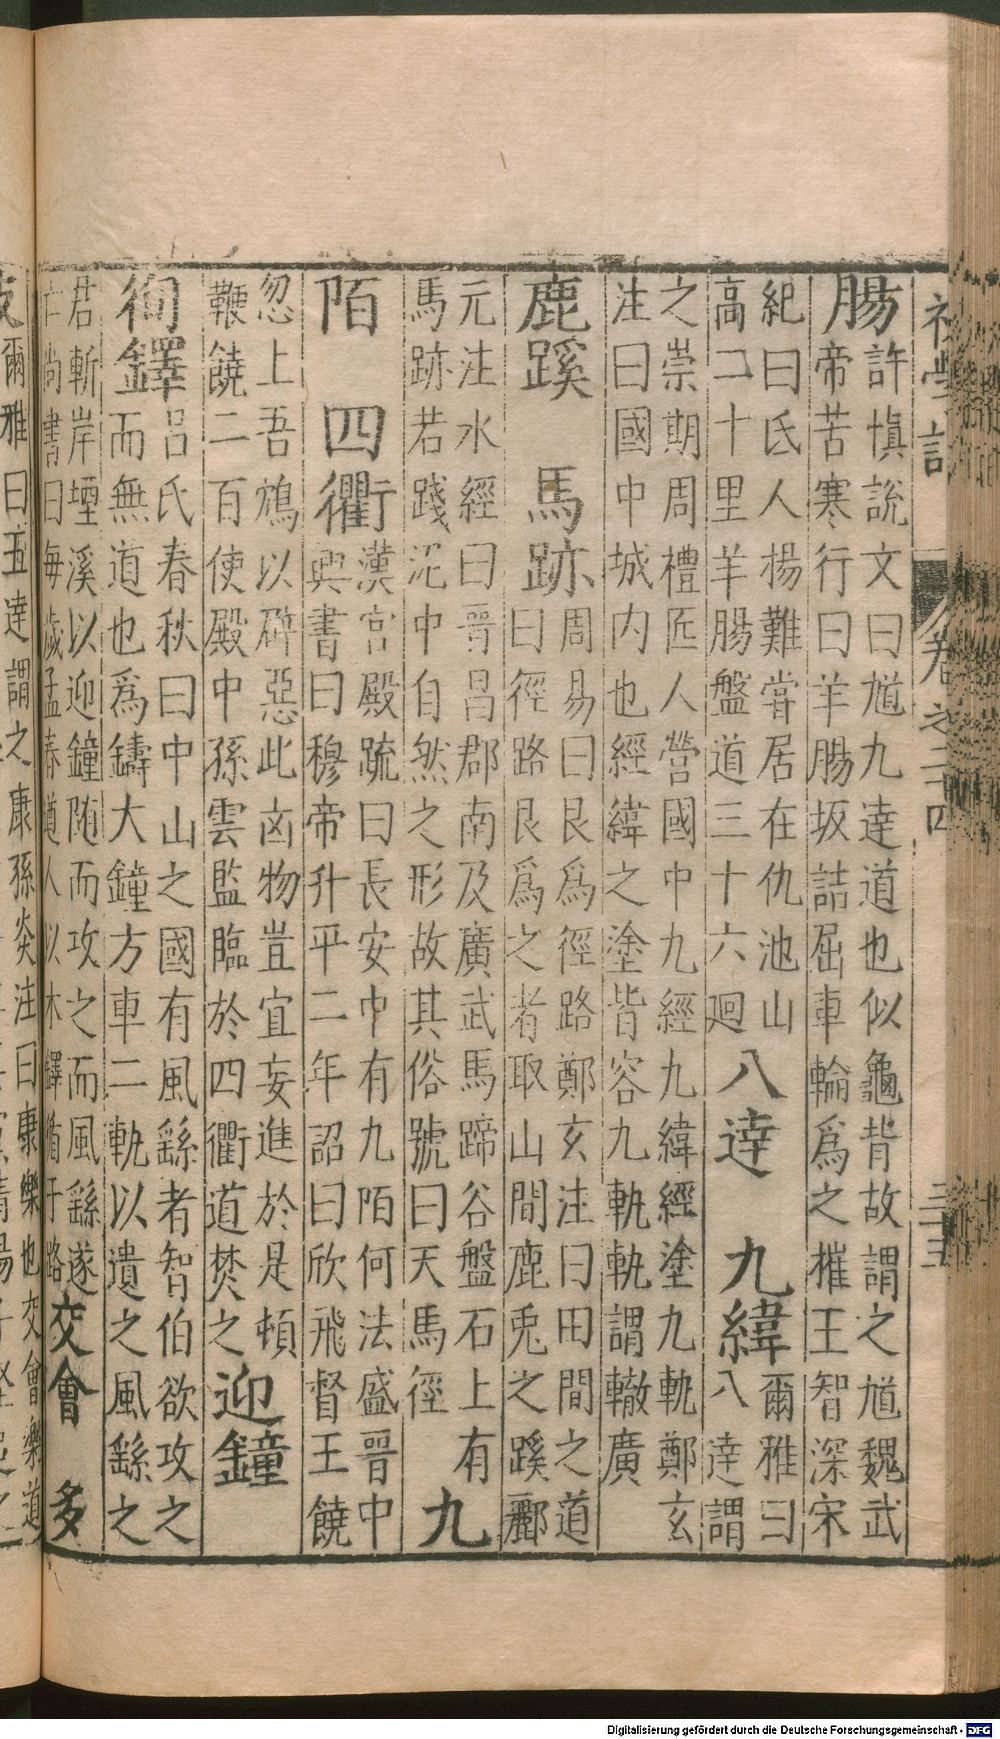 初學記 卷之二十四 三十五
腸
許慎說文曰馗九逵道也似龜背故謂之馗魏武
帝苦寒行曰羊腸坂詰屈車輪爲之摧王智深宋
紀曰氐人楊難當居在仇池山
高二十里羊腸盤道三十六廻
八逵 九緯
爾雅曰
八逵謂
之崇期周禮匠人營國中九經九緯經塗九軌鄭玄
注曰國中城内也經緯之塗皆容九軌軌謂轍廣
鹿蹊 馬跡
周易曰艮爲徑路鄭玄注曰田間之道
曰徑路艮爲之者取山間鹿兎之蹊酈
元注水經曰晉昌郡南及廣武馬蹄谷盤石上有
馬跡若踐泥中自然之形故其俗號曰天馬徑
九
陌 四衢
漢宫殿疏曰長安中有九陌何法盛晉中
興書曰穆帝升平二年詔曰欣飛督王饒
忽上吾鴆以碎惡此凶物豈宜妄進於是頓
鞭饒二百使殿中孫雲監臨於四衢道焚之
迎鐘
徇鐸
吕氏春秋曰中山之國有風繇者智伯欲攻之
而無道也爲鑄大鐘方車二軌以遺之風繇之
君斬岸堙溪以迎鐘隨而攻之而風繇遂
亡尚書曰每歳孟春遒人以木鐸循于路
交會 多
爾雅曰五達謂之康孫炎注曰康樂也交會樂道